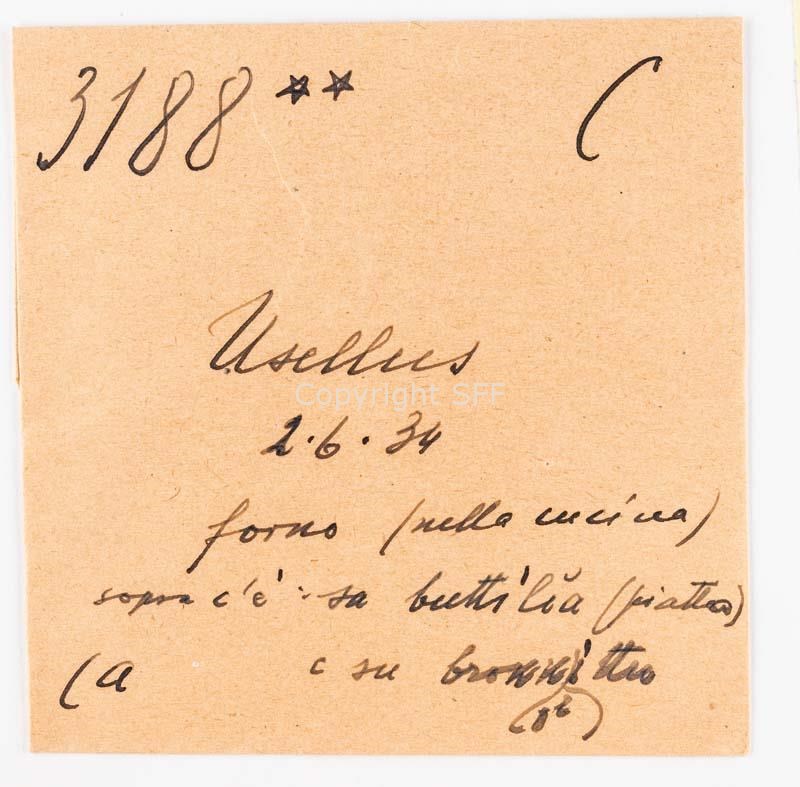 3188 ** C
Usellus
Copyright SFF
2.6.34
forno (nella cucina)
sopra c'è: sa butti'lĭa (piatta)
(a e su brokkìttu